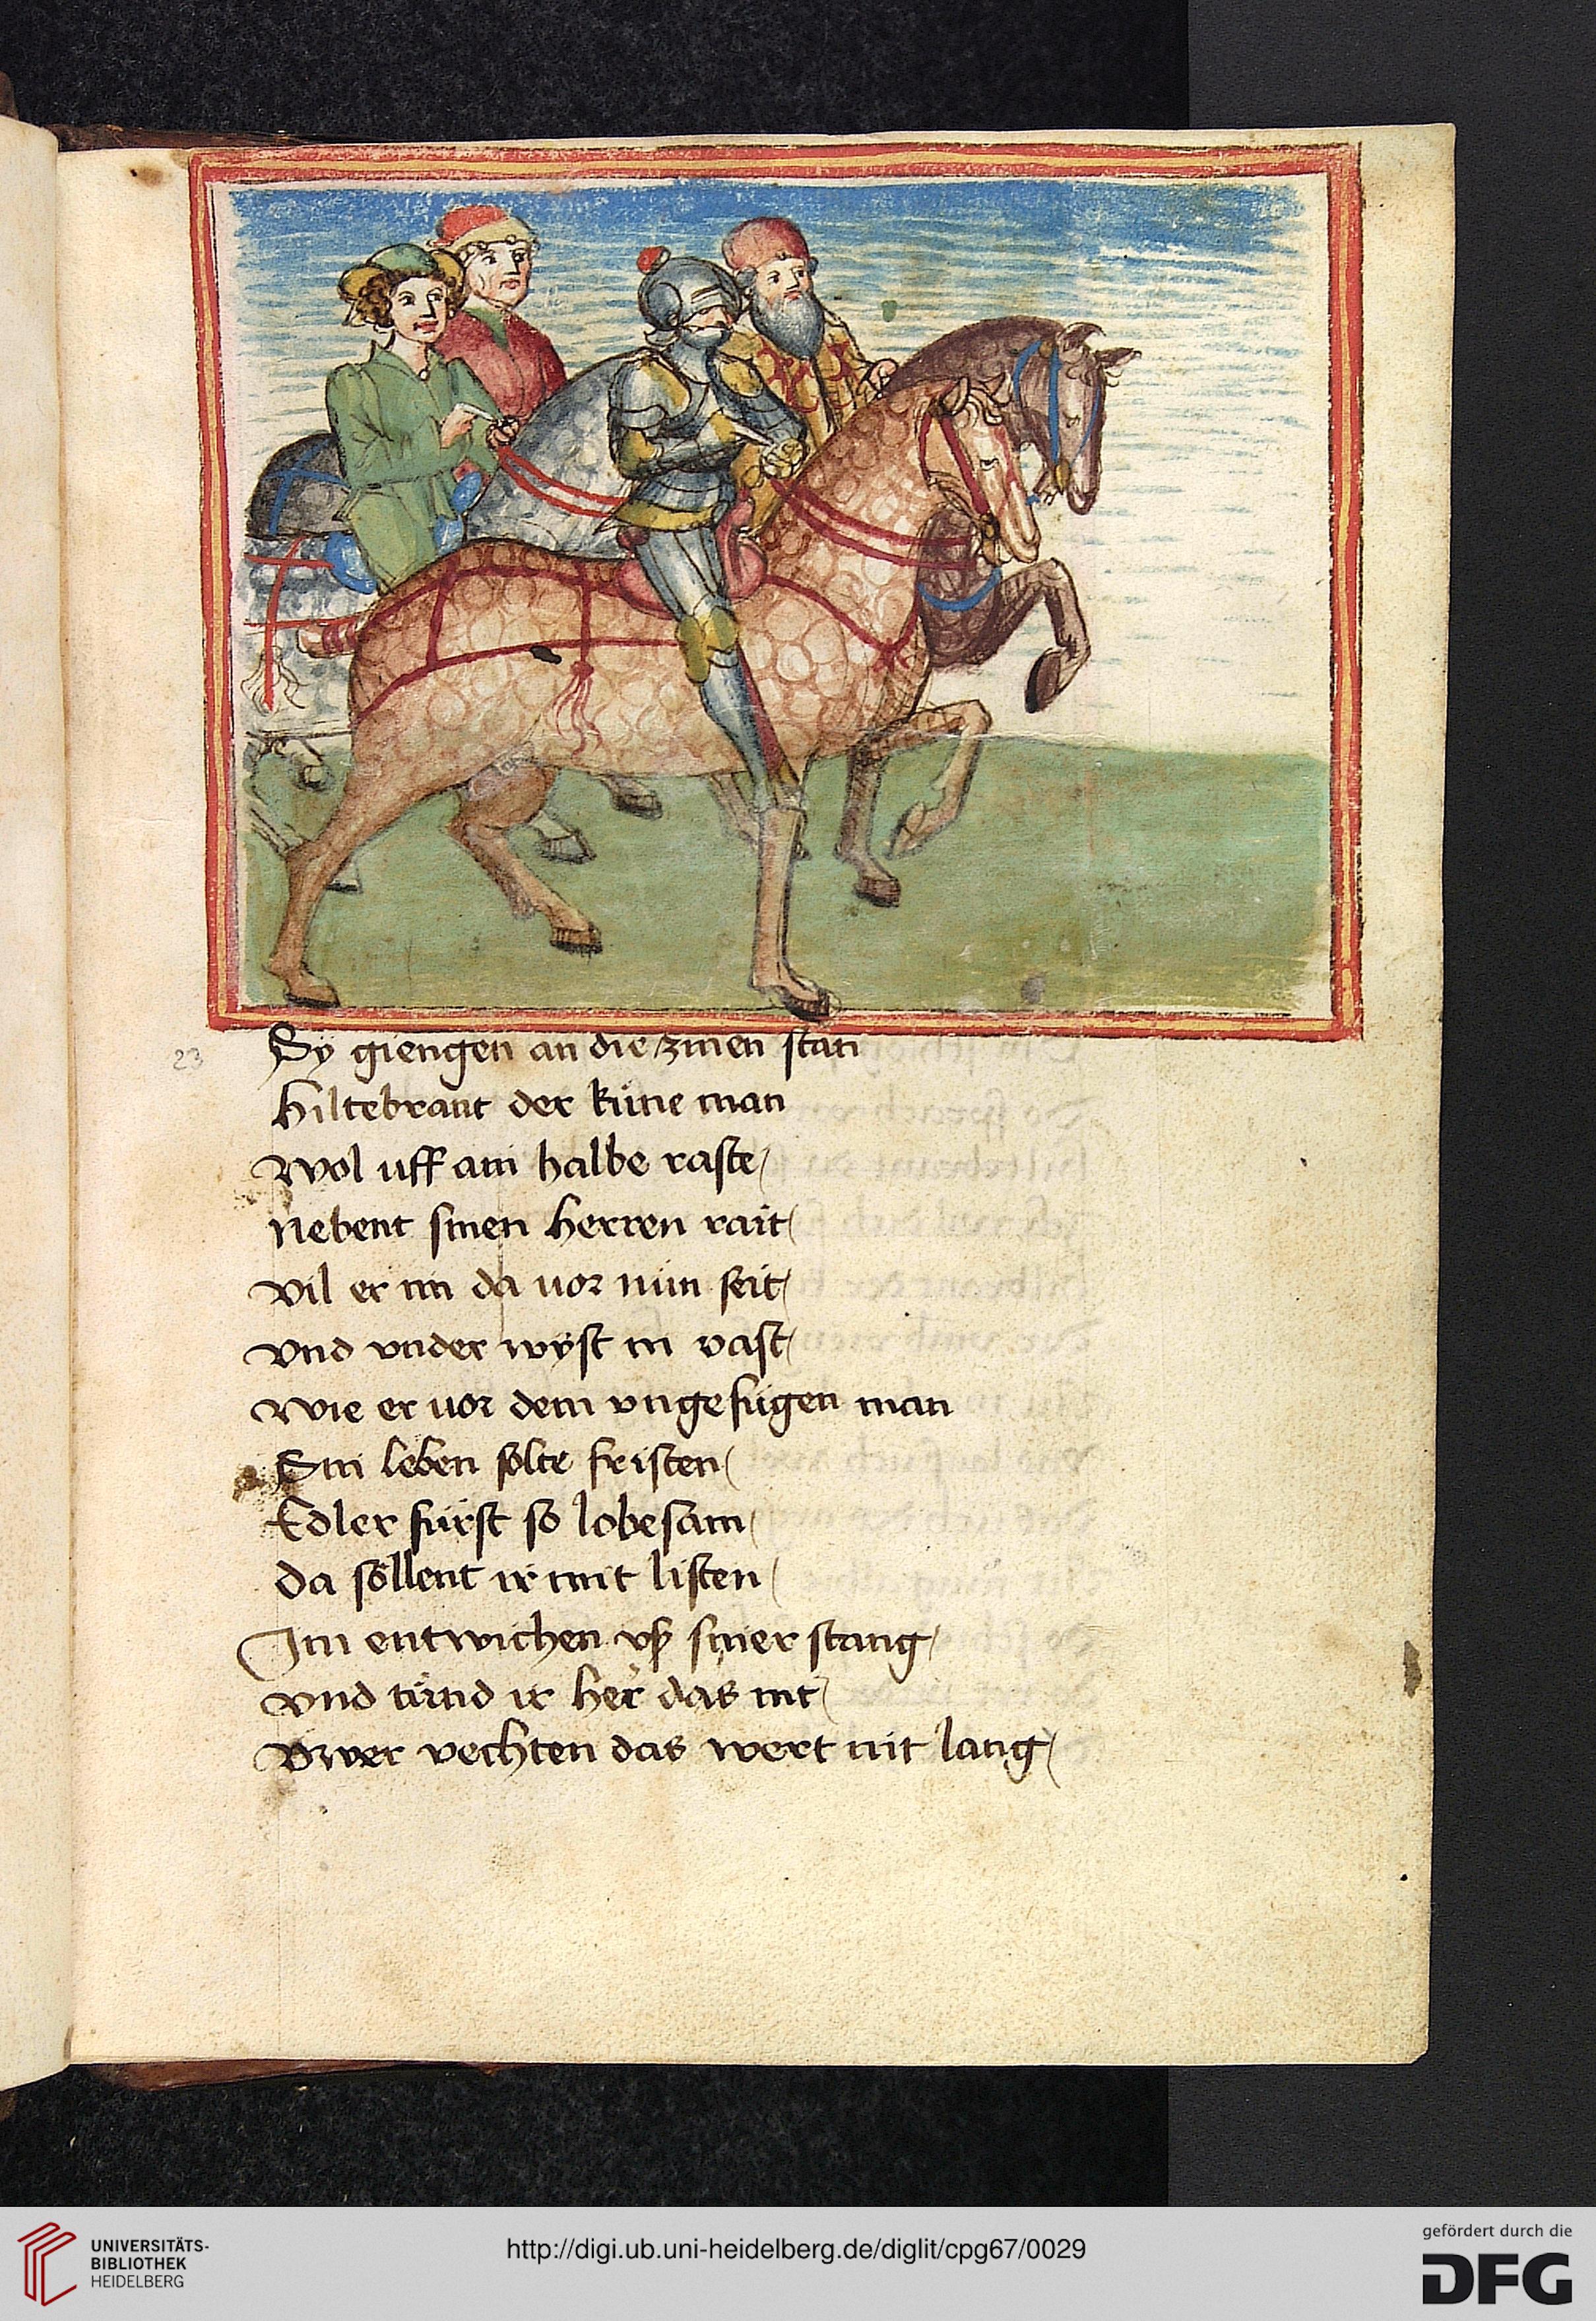 23
Sy giengen an die zinen stan
Hiltebrant der küne man
Wol uff ain halbe raste/
Nebent sinen herren rait/
Vil er im da vor nun seit/
Vnd vnder wyst in vast/
Wie er vor dem vngefügen man
Sin leben solte fristen/
Edler fürst so lobesam/
Da söllent ir mit listen/
Im entwichen vß siner stang/
Vnd tünd ir her das nit/
Vwer vechten das wert nit lang/
UNIVERSITÄTS-
BIBLIOTHEK
HEIDELBERG
http://digi.ub.uni-heidelberg.de/diglit/cpg67/0029
gefördert durch die
DFG